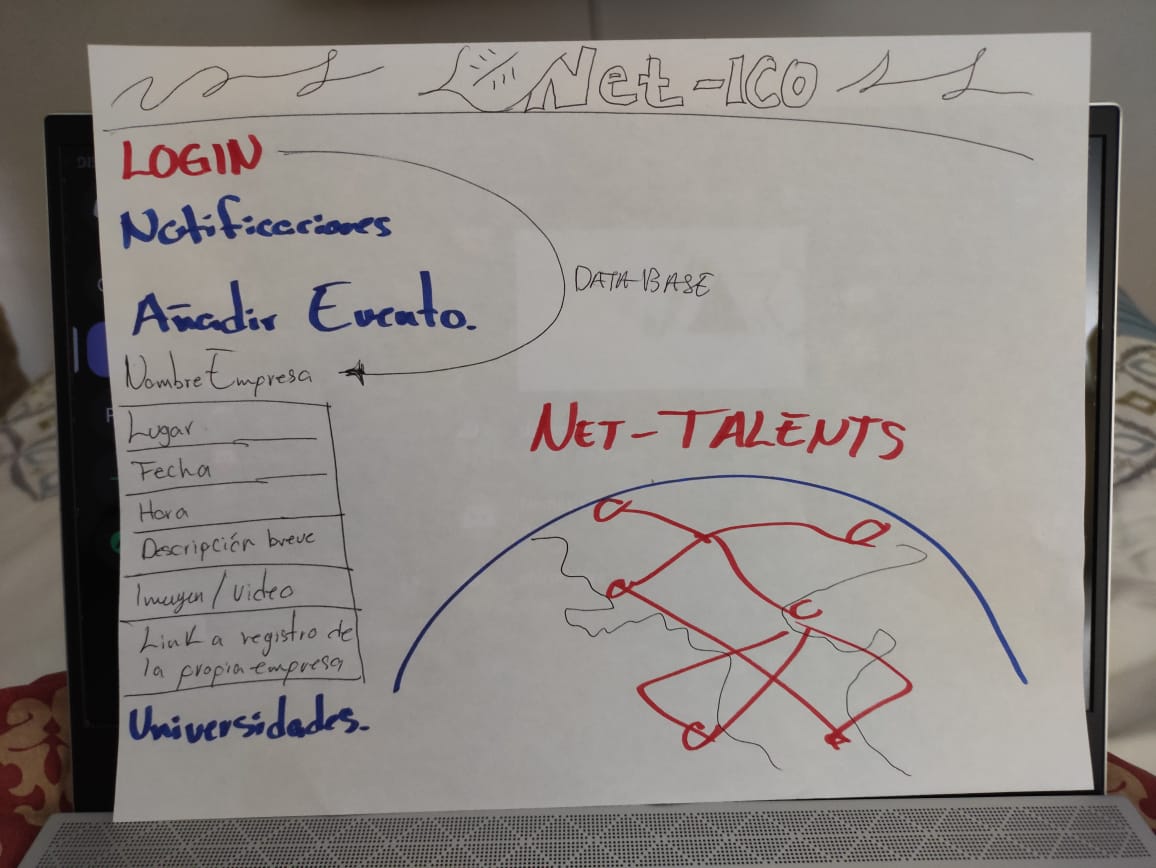 Net-ICO
LOGIN
Notificaciones
DATA-BASE
Añadir Evento.
Nombre Empresa
Lugar
Fecha
Hora
Descripción breve
Imagen / Video
Link a registro de
la propia empresa
Universidades.
NET-TALENTS